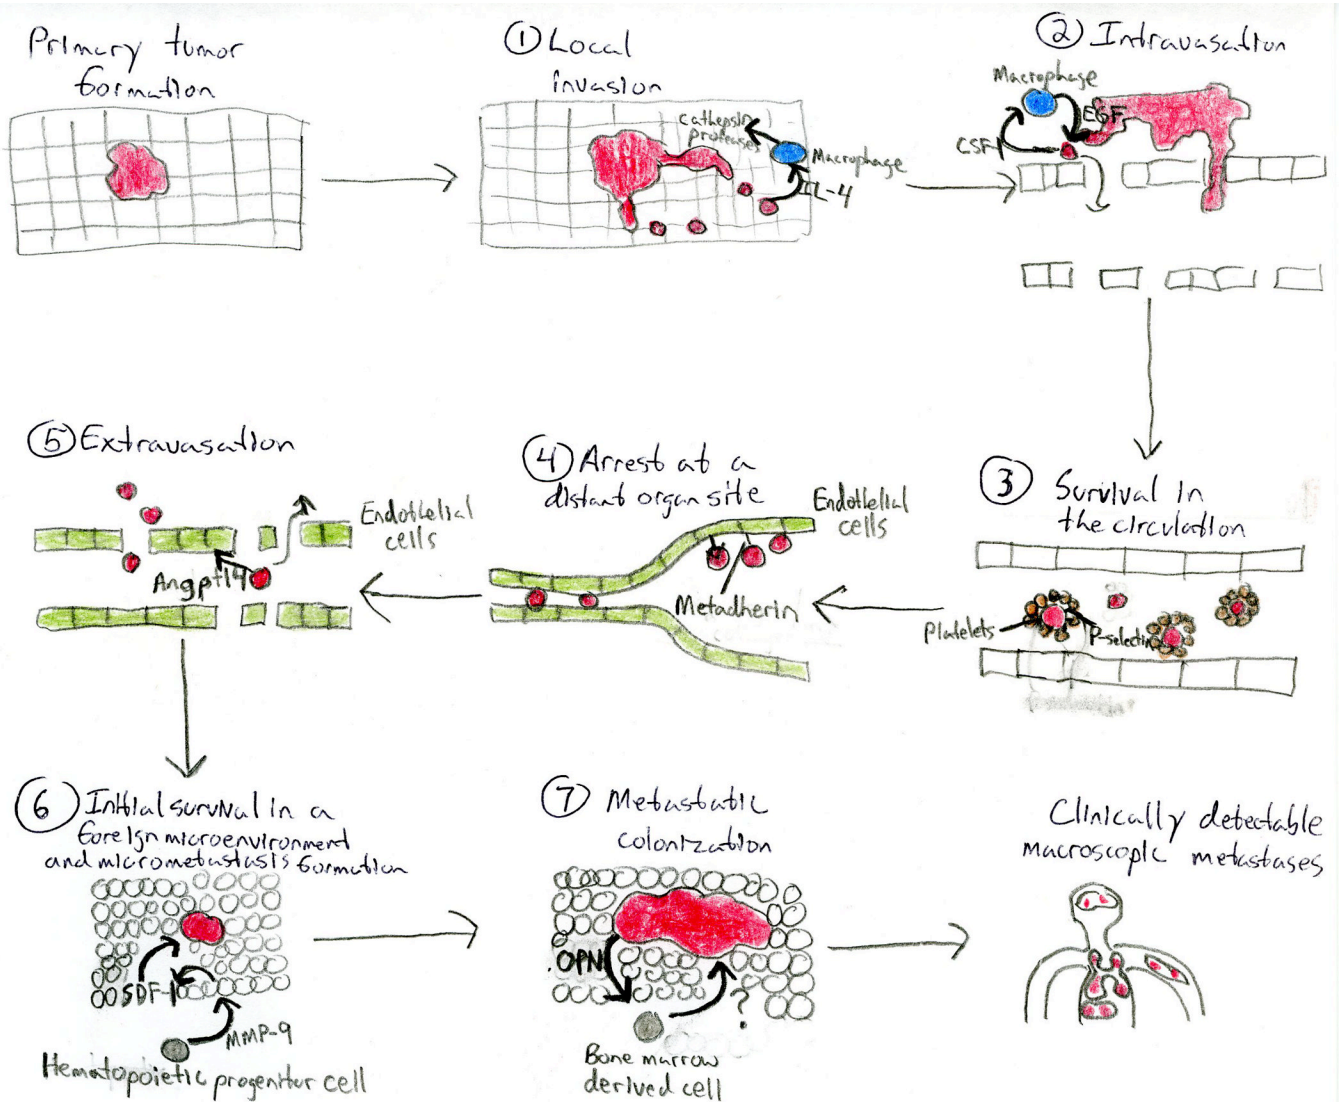 Primary tumor
formation
① Local
invasion
cathepsin
proteases
Macrophage
IL-4
② Intravasation
Macrophage
EGF
CSF1
⑤ Extravasation
Endothelial
cells
Angptl4
④ Arrest at a
distant organ site
Endothelial
cells
Metadherin
③ Survival in
the circulation
Platelets
P-selectin
⑥ Initial survival in a
foreign microenvironment
and micrometastasis formation
SDF-1
MMP-9
Hematopoietic progenitor cell
⑦ Metastatic
colonization
OPN
?
Bone marrow
derived cell
Clinically detectable
macroscopic metastases